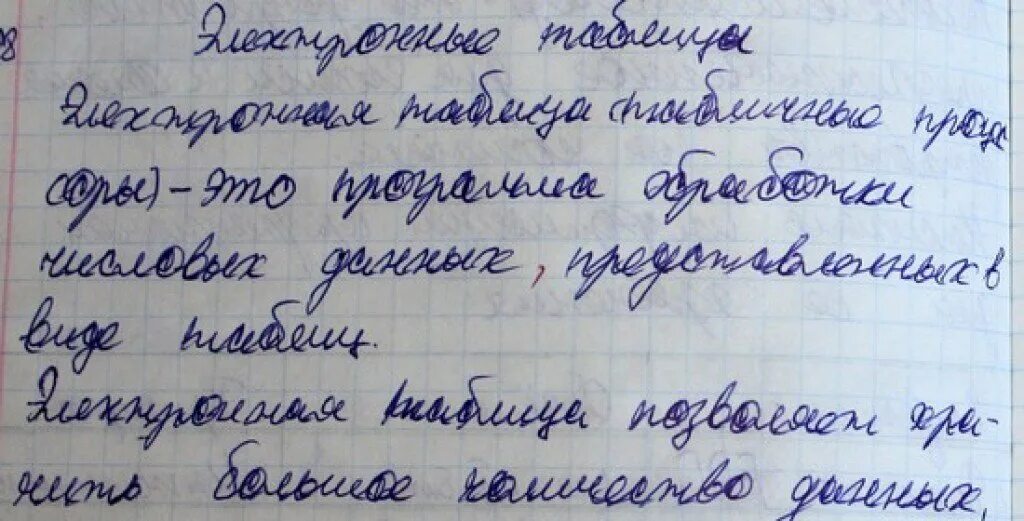 Электронные таблицы
Электронная таблица (табличные процес
соры) – это программа обработки
числовых данных, представленных в
виде таблиц.
Электронная таблица позволяет хра-
нить большое количество данных,